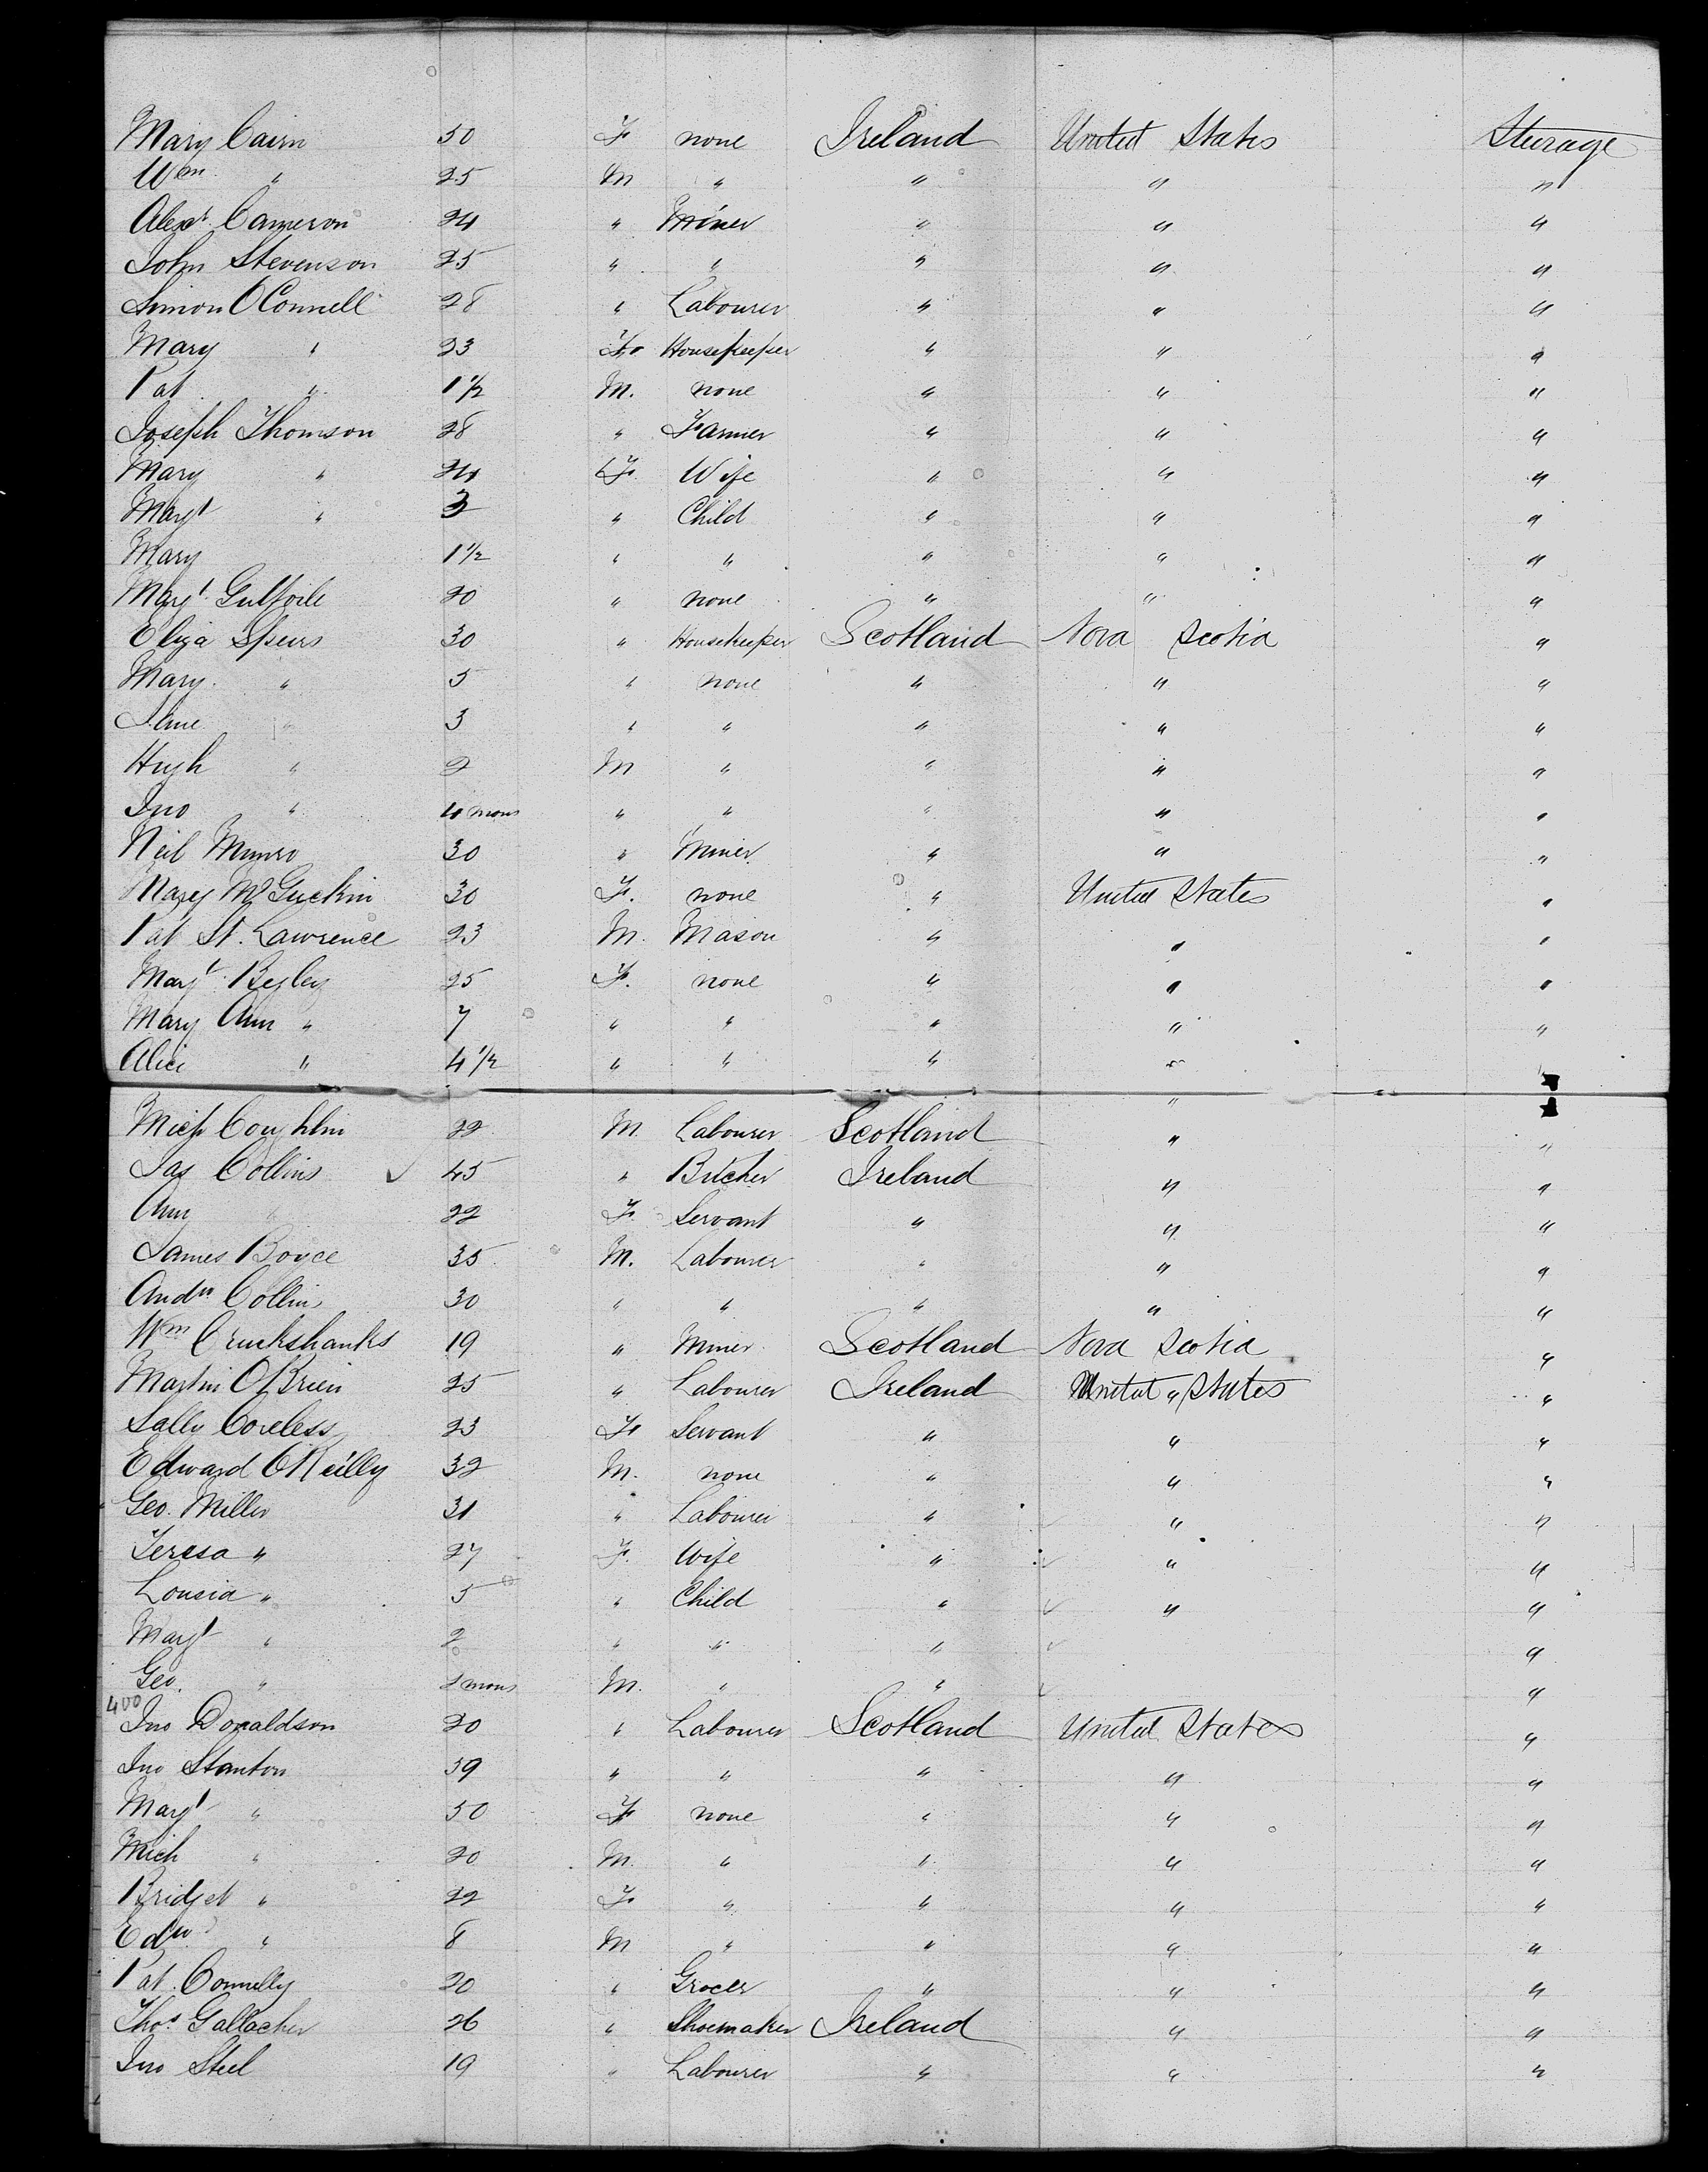 Mary Cairn 50 F none Ireland United States Steerage
Wm " 25 M " " " "
Alexr Cameron 24 " Miner " " "
John Stevenson 25 " " " " "
Simon OConnell 28 " Labourer " " "
Mary " 23 F Housekeeper " " "
Pat " 1 1/2 M. none " " "
Joseph Thomson 28 " Farmer " " "
Mary " 24 F Wife " " "
Margt " 3 " Child " " "
Mary 1 1/2 " " " " "
Margt 20 " none " " "
Eliza Speirs 30 " Housekeeper Scotland Nova Scotia "
Mary " 5 " none " " "
Jane " 3 " " " " "
Hugh " 2 M " " " "
Jno " 4 mons " " " " "
Neil Munro 30 " Miner " " "
Mary McGuckin 30 F. none " United States "
Pat St. Lawrence 23 M. Mason " " "
Margt Begley 25 F. none " " "
Mary Ann " 7 " " " " "
Alice " 4 1/2 " " " "
"
Mich Coughlin 22 M. Labourer Scotland " "
Jas Collins ✓ 45 " Butcher Ireland " "
Ann " 22 F. Servant " " "
James Boyce 35 M. Labourer " " "
Andw Collins 30 " " " " "
Wm Cruckshanks 19 " Miner Scotland Nova Scotia "
Martin OBrien 25 " Labourer Ireland United " States "
Sally Coreless 23 F Servant " " "
Edward OReilly 32 M. none " " "
Geo. Miller 31 " Labourer " " "
Teresa " 27 F. Wife " ✓ " "
Lousia " 5 " Child " ✓ " "
Margt " 2 " " " ✓ "
Geo. " mons M. " " ✓ "
400
Jno Donaldson 20 " Labourer Scotland United States "
Jno Stanton 59 " " " " "
Margt " 50 F none " " "
Mich " 20 M. " " " "
Bridget " 22 F " " " "
Edw " 8 M " " " "
Pat. Connelly 20 " Grocer " " "
Thos. Gallacher 26 " Shoemaker Ireland " "
Jno Steel 19 " Labourer " " "